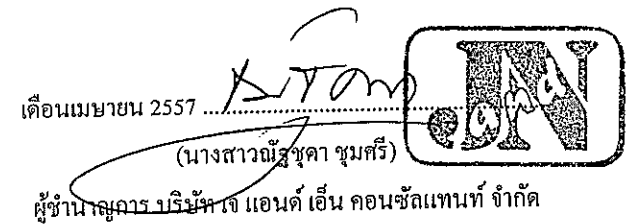 เดือนเมษายน 2557 ........................................
(นางสาวณัฐชุดา ชุมศรี)
ผู้ชำนาญการ บริษัท เจ แอนด์ เอ็น คอนซัลแทนท์ จำกัด